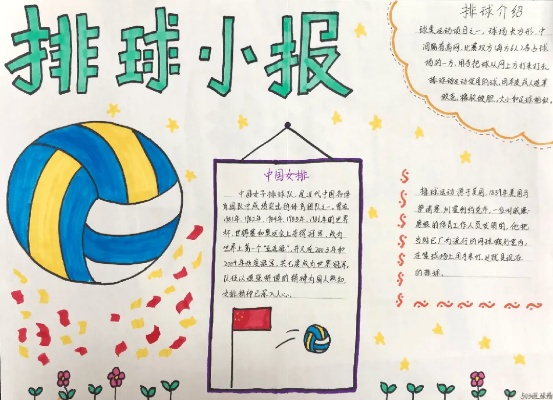 排球小报
排球介绍
球类运动项目之一，球场长方形，中
间隔有高网，比赛双方(每方六人)各占球
场的一方，用手把球从网上方打来打去。
排球运动使用的球，用羊皮或人造革
做壳，橡胶做胆，大小和足球相似。
中国女排
中国女子排球队，是近代中国各体
育团队中成绩突出的体育团队之一。曾在
1981年、1982年、1984年、1985年、1986年的世界
杯、世界赛和奥运会上夺得冠军，成为
世界上第一个“五连冠”，并又在2003年和
2004年
女排精神已深入人心。
排球运动源于美国。1895年美国马
萨诸塞州霍利约克市，一位叫威廉·
摩根的体育工作人员发明的。他把
当时已广为流行的网球搬到室内，
在篮球场上用手来打，这就是最原
的排球。